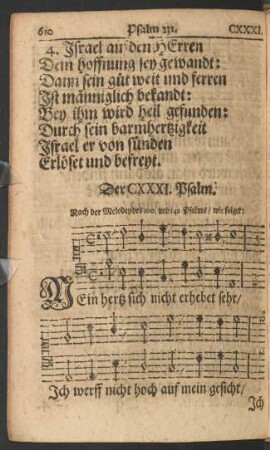 610 Psalm 131. CXXXI.
4. Israel an den HErren
Dein hoffnung sey gewandt:
Dann sein güt weit und ferren
Ist männiglich bekandt:
Bey ihm wird heil gefunden:
Durch sein barmhertzigkeit
Israel er von sünden
Erlöset und befreyt.
Der CXXXI. Psalm.
Nach der Melodey des 100. und 142. Psalms / wie folget:
MEin hertz sich nicht erhebet sehr /
Ich werff nicht hoch auf mein gesicht /
Ich